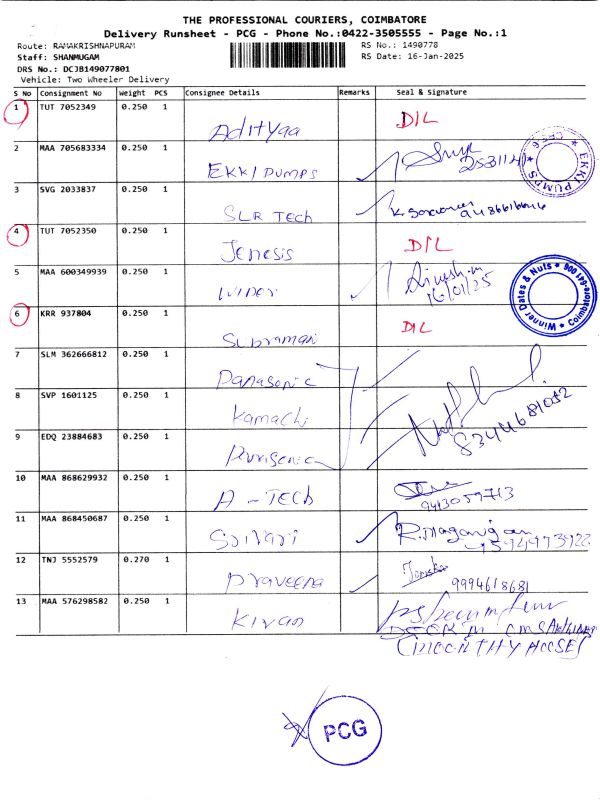 THE PROFESSIONAL COURIERS, COIMBATORE
Delivery Runsheet - PCG - Phone No.:0422-3505555 - Page No.:1
Route: RAMAKRISHNAPURAM RS No.: 1490778
Staff: SHANMUGAM RS Date: 16-Jan-2025
DRS No.: DCJB149077801
Vehicle: Two Wheeler Delivery
S No Consignment No Weight PCS Consignee Details Remarks Seal & Signature
1 TUT 7052349 0.250 1 Adityaa D/L
2 MAA 705683334 0.250 1 EKKI PUMPS
EKKI PUMPS
3 SVG 2033837 0.250 1 SLR Tech
4 TUT 7052350 0.250 1 Jenesis D/L
5 MAA 600349939 0.250 1 16/01/25
Winner Dates & Nuts * Coimbatore-641 006 *
6 KRR 937804 0.250 1 D/L
7 SLM 362666812 0.250 1 Panasonic
8 SVP 1601125 0.250 1 Kamachi
8344681052
9 EDQ 23884683 0.250 1
10 MAA 868629932 0.250 1 A-TECH
9413059713
11 MAA 868450687 0.250 1
12 TNJ 5552579 0.270 1 Praveena
9994618681
13 MAA 576298582 0.250 1 Kiran
PCG